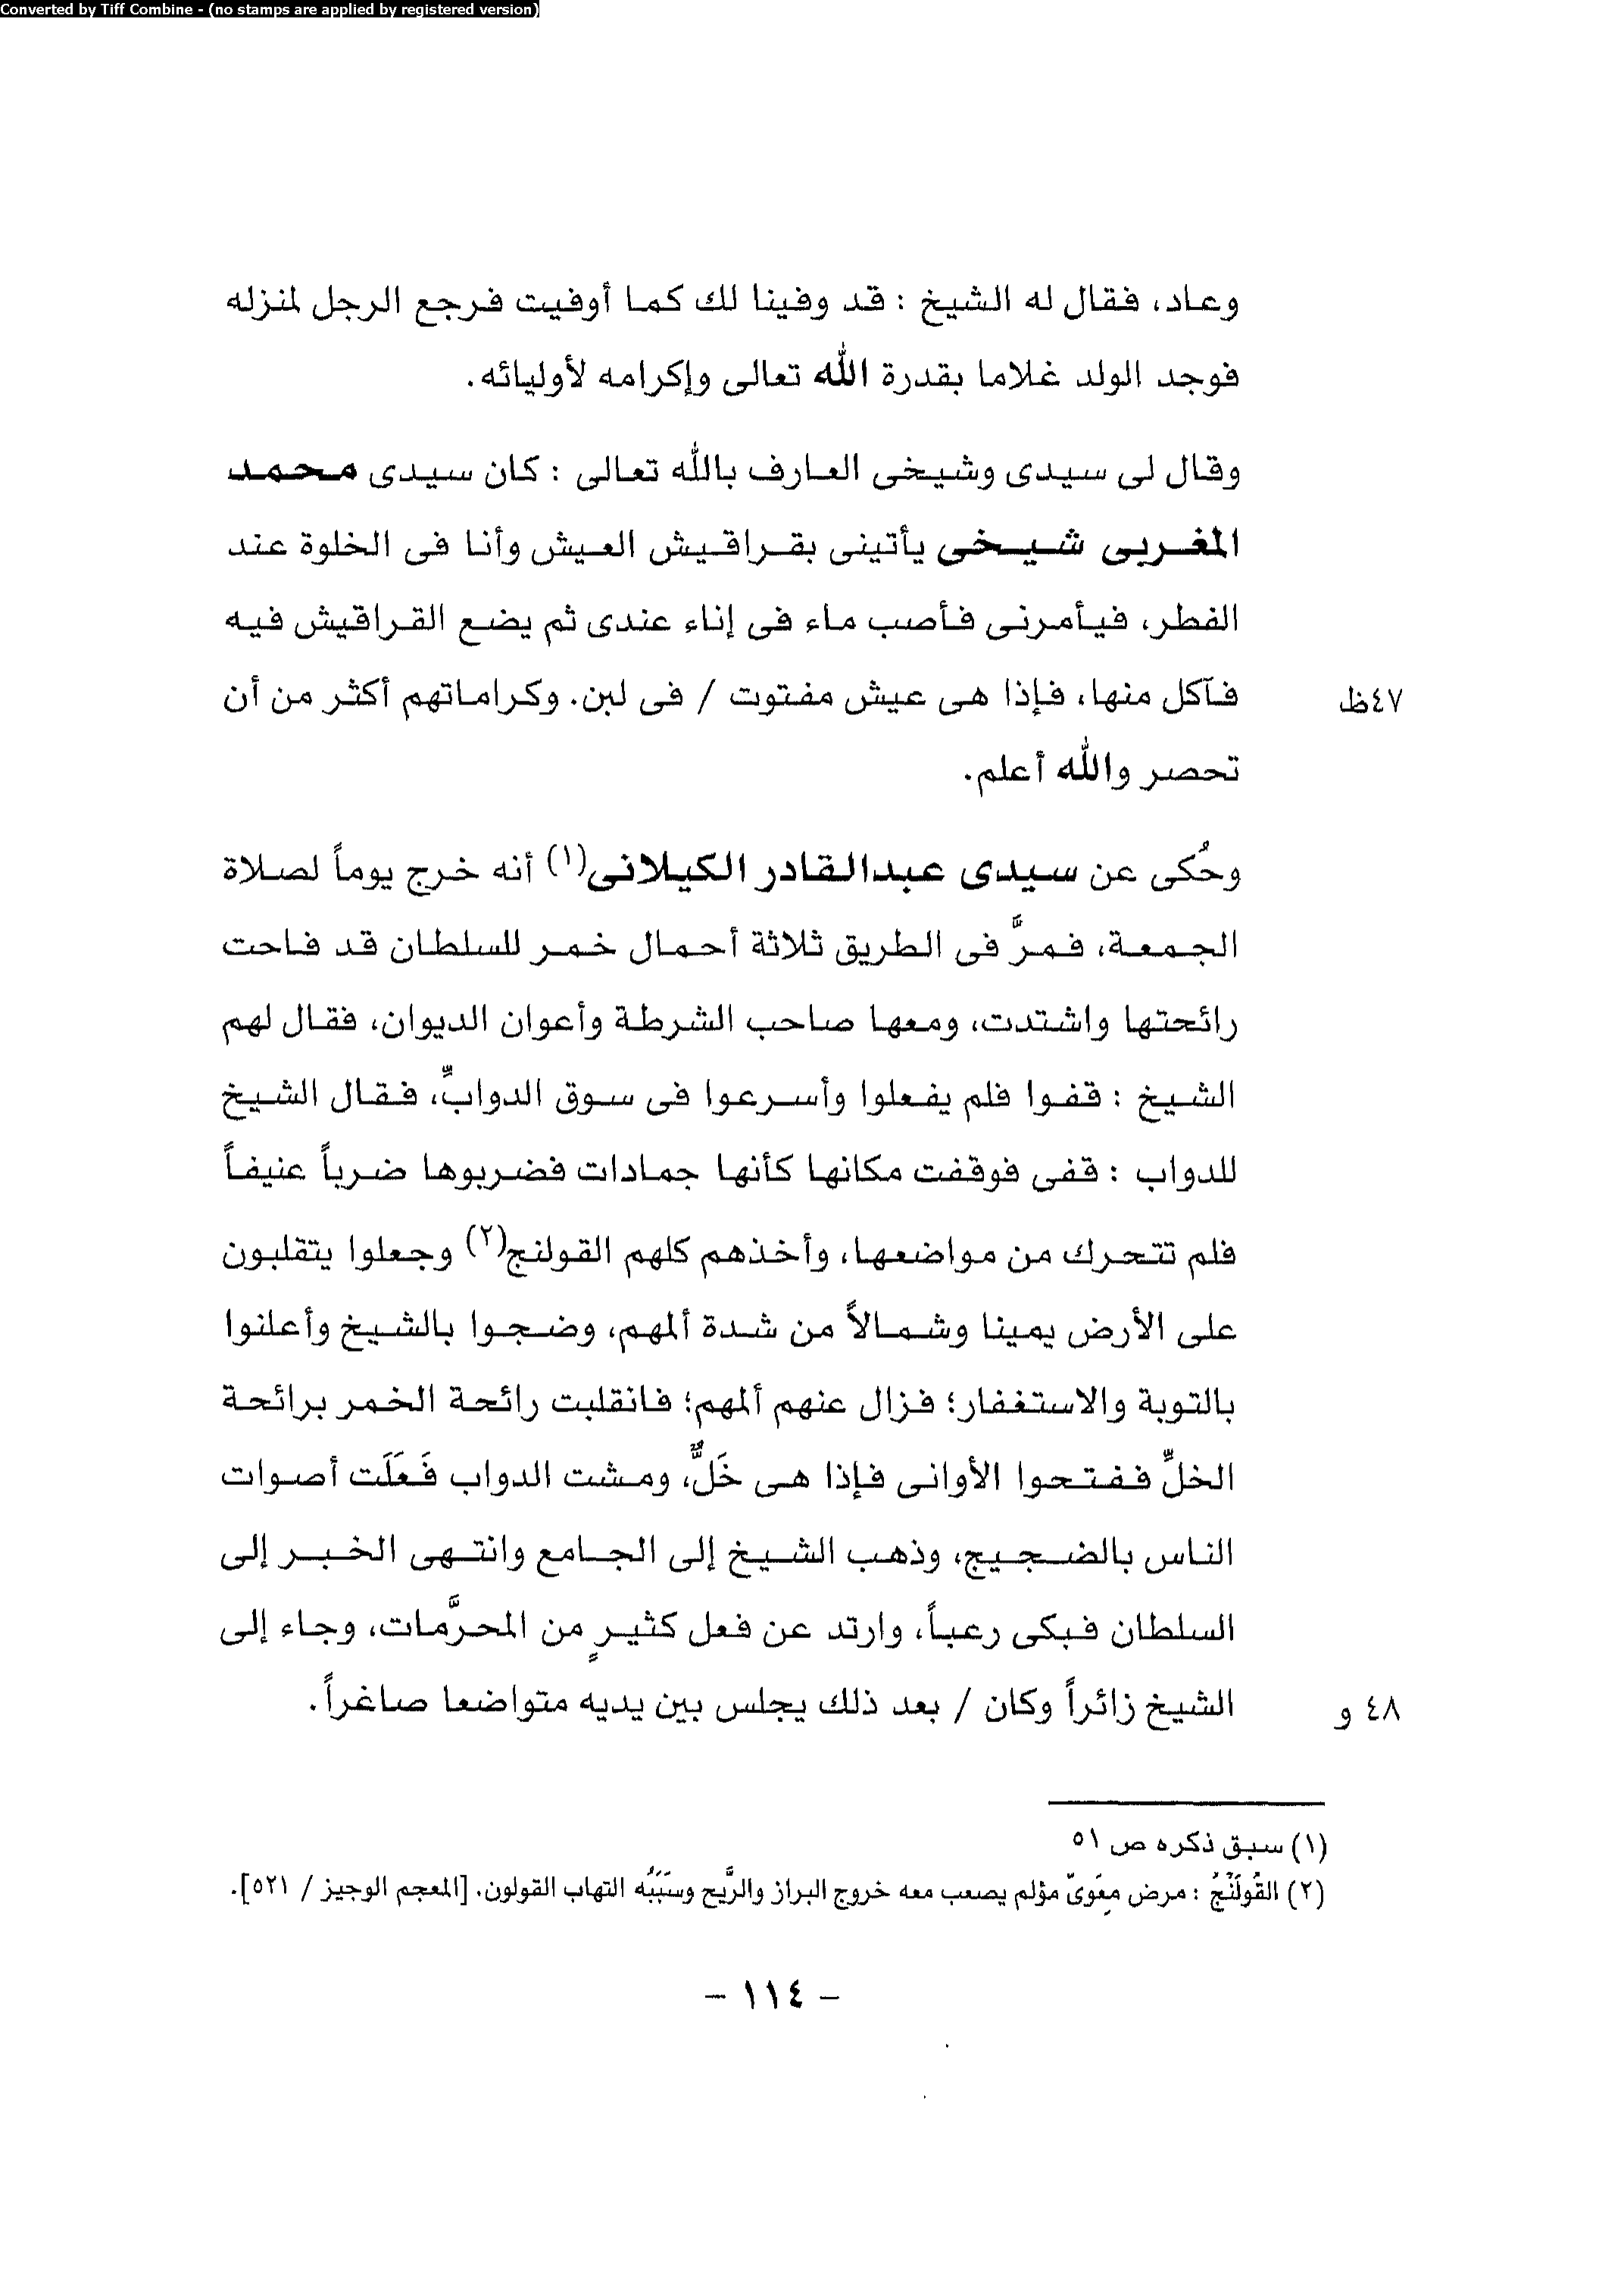 Converted by Tiff Combine - (no stamps are applied by registered version)
وعاد، فقال له الشيخ : قد وفينا لك كما أوفيت فرجع الرجل لمنزله
فوجد الولد غلاما بقدرة الله تعالى وإكرامه لأوليائه.
وقال لى سيدى وشيخى العارف بالله تعالى : كان سيدى محمد
المغربى شيخى يأتينى بقراقيش العيش وأنا فى الخلوة عند
الفطر، فيأمرنى فأصب ماء فى إناء عندى ثم يضع القراقيش فيه
فآكل منها، فإذا هى عيش مفتوت / فى لبن. وكراماتهم أكثر من أن
٤٧ظ
تحصر والله أعلم.
وحُكى عن سيدى عبدالقادر الكيلانى(١) أنه خرج يوماً لصلاة
الجمعة، فمرَّ فى الطريق ثلاثة أحمال خمر للسلطان قد فاحت
رائحتها واشتدت، ومعها صاحب الشرطة وأعوان الديوان، فقال لهم
الشيخ : قفوا فلم يفعلوا وأسرعوا فى سوق الدوابِّ، فقال الشيخ
للدواب : قفى فوقفت مكانها كأنها جمادات فضربوها ضرباً عنيفاً
فلم تتحرك من مواضعها، وأخذهم كلهم القولنج(٢) وجعلوا يتقلبون
على الأرض يمينا وشمالاً من شدة ألمهم، وضجوا بالشيخ وأعلنوا
بالتوبة والاستغفار؛ فزال عنهم ألمهم؛ فانقلبت رائحة الخمر برائحة
الخلِّ ففتحوا الأوانى فإذا هى خَلٌّ، ومشت الدواب فَعَلَت أصوات
الناس بالضجيج، وذهب الشيخ إلى الجامع وانتهى الخبر إلى
السلطان فبكى رعباً، وارتد عن فعل كثيرٍ من المحرَّمات، وجاء إلى
الشيخ زائراً وكان / بعد ذلك يجلس بين يديه متواضعا صاغراً.
٤٨ و
(١) سبق ذكره ص ٥١
(٢) القُولَنْجُ : مرض مِعَوىّ مؤلم يصعب معه خروج البراز والرَّيح وسَبَبُه التهاب القولون. [المعجم الوجيز / ٥٢١].
- ١١٤ -